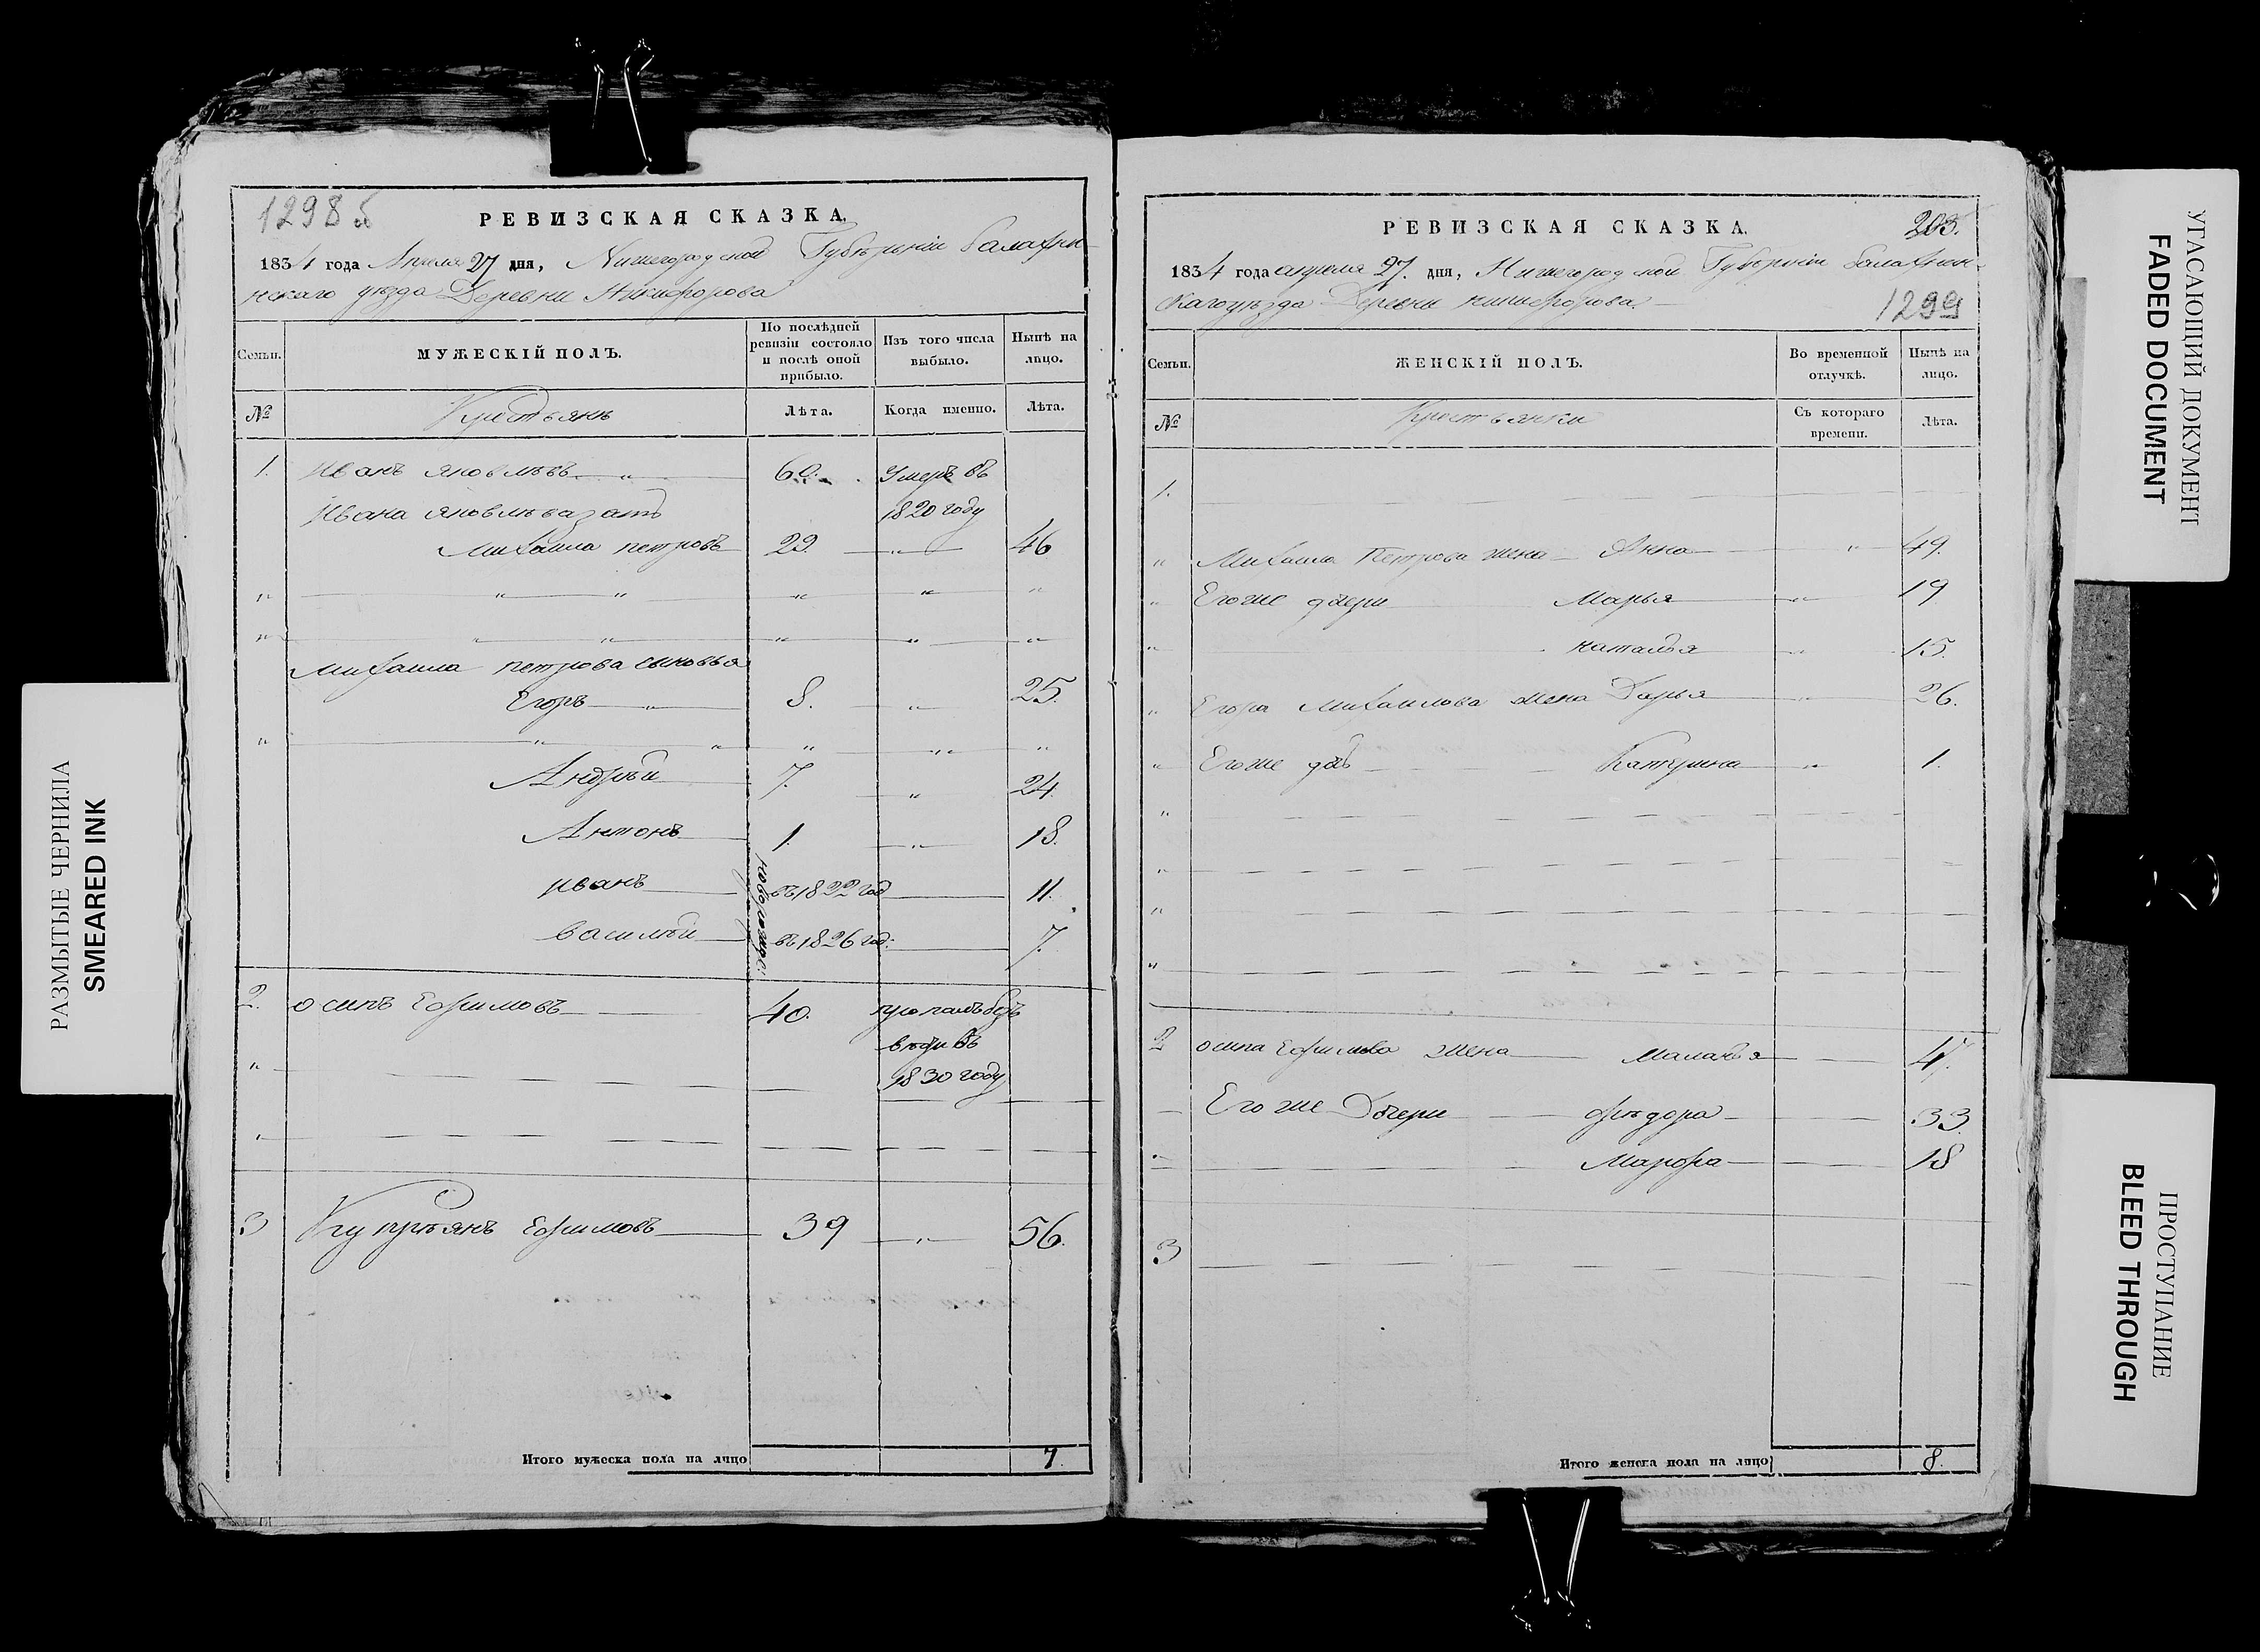 1298 б
РЕВИЗСКАЯ СКАЗКА.
1834 года Апреля 27 дня, Нижегородской Губерніи Балахни-
нскаго уезда Деревни Никифорова
Семьи.
МУЖЕСКІЙ ПОЛЪ.
По послѣдней ревизіи состояло и послѣ оной прибыло.
Изъ того числа выбыло.
Нынѣ на лицо.
№
Крестьянъ
Лѣта.
Когда именно.
Лѣта.
1. Иванъ яковлевъ " 60. Умеръ въ
Ивана яковлева зять 1820 году
Михаила петровъ 29. " 46
" " " " " "
" " " " " "
Михаила петрова сыновья
Егоръ " 8. " 25.
" " " " " "
Андрей 7. " 24.
Антонъ 1. " 18.
новорожде:
иванъ въ 1822 год 11.
василей въ 1826 год: 7.
2. осипъ Ефимовъ 40. пропалъ безъ
вести въ
" 1830 году
"
3 Купреянъ Ефимовъ 39 " 56.
Итого мужеска пола на лицо 7.
РЕВИЗСКАЯ СКАЗКА.
203.
1834 года апреля 27. дня, Нижегородской Губерніи балахнин-
скаго уезда Деревни никифорова.
1299
Семьи.
ЖЕНСКІЙ ПОЛЪ.
Во временной отлучкѣ.
Нынѣ на лицо.
№
Крестьянки
Съ котораго времени.
Лѣта.
1.
" Михаила Петрова жена Анна " 49.
" Егоже дочери Марья " 19
" наталья " 15.
" Егора Михаилова жена Дарья " 26.
" Егоже дочь Катерина " 1.
"
"
"
"
2 осипа Ефимова жена Маланья 47.
Егоже Дочери федора 33.
Марфа 18
3
Итого женска пола на лицо 8.
РАЗМЫТЫЕ ЧЕРНИЛА
SMEARED INK
УГАСАЮЩИЙ ДОКУМЕНТ
FADED DOCUMENT
ПРОСТУПАНИЕ
BLEED THROUGH